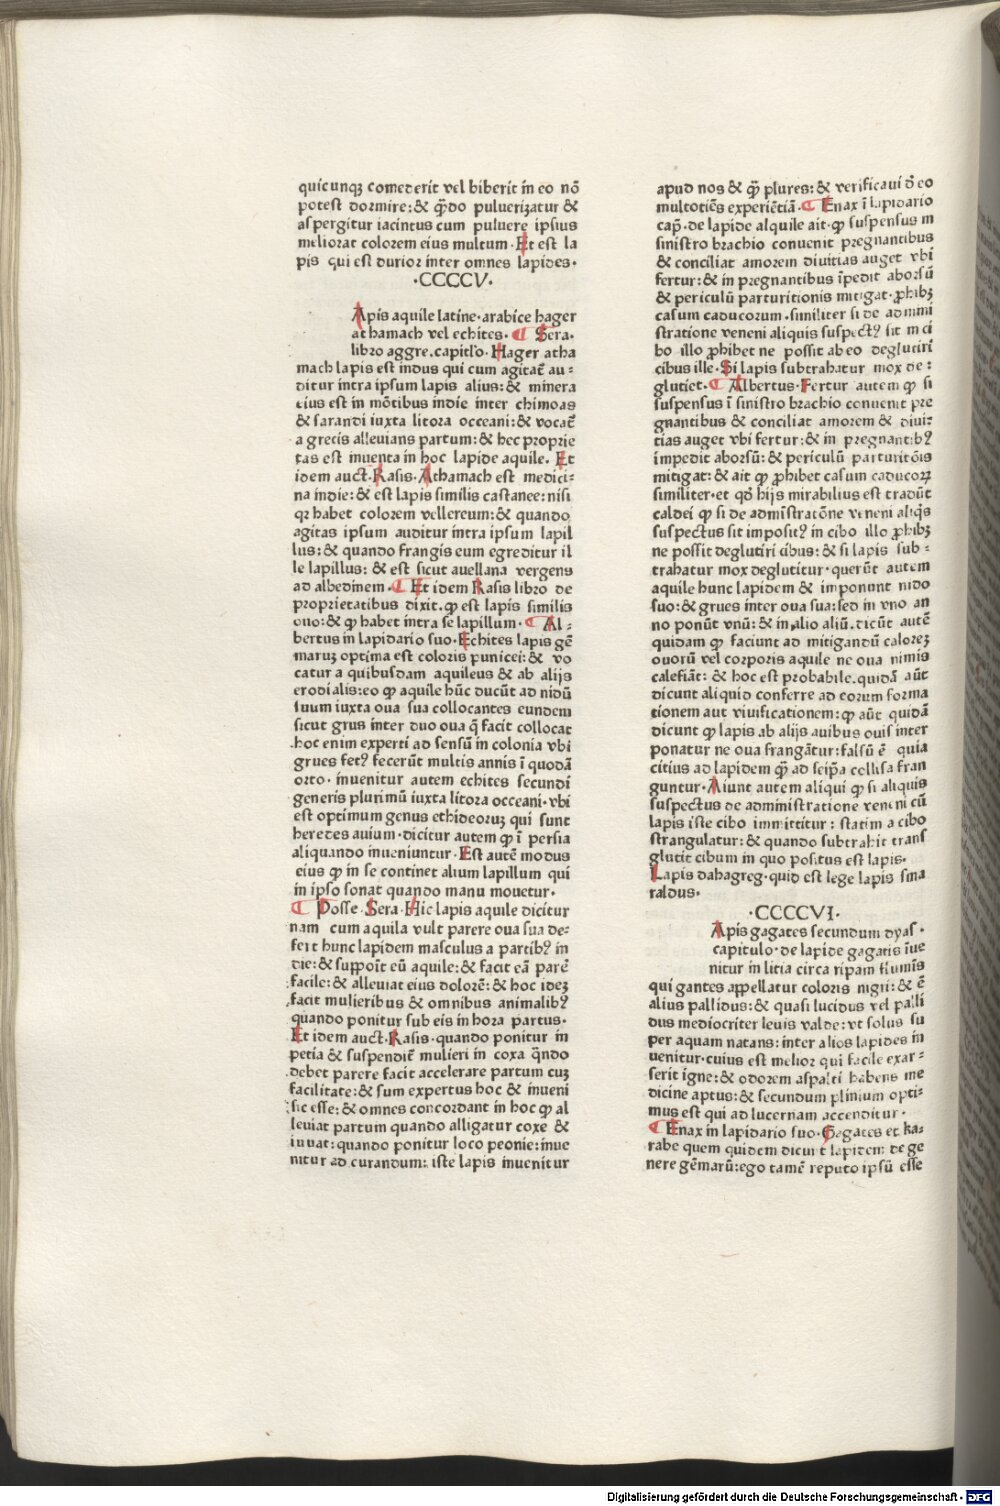 quicunqꝫ comederit vel biberit in eo nō
potest dormire: & qñdo puluerizatur &
aspergitur iacinctus cum puluere ipsius
meliorat colorem eius multum. Et est la
pis qui est durior inter omnes lapides.
.CCCCV.
Apis aquile latine. arabice hager
athamach vel echites. ¶ Sera.
libro aggre. capitl'o. Hager atha
mach lapis est indus qui cum agitat̄ au=
ditur intra ipsum lapis alius: & minera
eius est in mōtibus indie inter chimoas
& sarandi iuxta litora occeani: & vocat̄
a grecis alleuians partum: & hec proprie
tas est inuenta in hoc lapide aquile. Et
idem auct. Rasis. Athamach est medici=
na indie: & est lapis similis castanee: nisi
qꝛ habet colorem vellereum: & quando
agitas ipsum auditur intra ipsum lapil
lus: & quando frangis eum egreditur il
le lapillus: & est sicut auellana vergens
ad albedinem. ¶ Et idem Rasis libro de
proprietatibus dixit. ꝙ est lapis similis
ouo: & ꝙ habet intra se lapillum. ¶ Al=
bertus in lapidario suo. Echites lapis gē
maruꝫ optima est coloris punicei: & vo
catur a quibusdam aquileus & ab alijs
erodialis: eo ꝙ aquile hūc ducūt ad nidū
suum iuxta oua sua collocantes eundem
sicut grus inter duo oua q̄ facit collocat
hoc enim experti ad sensū in colonia vbi
grues fetꝰ fecerūt multis annis ī quodā
orto. inuenitur autem echites secundi
generis plurimū iuxta litora occeani. vbi
est optimum genus ethideoruꝫ qui sunt
heredes auium. dicitur autem ꝙ ī persia
aliquando inueniuntur. Est autē modus
eius ꝙ in se continet alium lapillum qui
in ipso sonat quando manu mouetur.
¶ Posse. Sera. Hic lapis aquile dicitur
nam cum aquila vult parere oua sua de=
fert hunc lapidem masculus a partibꝰ in
die: & suppoīt eū aquile: & facit eā parē
facile: & alleuiat eius dolorē: & hoc ideꝫ
facit mulieribus & omnibus animalibꝰ
quando ponitur sub eis in hora partus.
Et idem auct. Rasis. quando ponitur in
petia & suspendit̄ mulieri in coxa qn̄do
debet parere facit accelerare partum cuꝫ
facilitate: & sum expertus hoc & inueni
sic esse: & omnes concordant in hoc ꝙ al
leuiat partum quando alligatur coxe &
iuuat: quando ponitur loco peonie: inue
nitur ad curandum: iste lapis inuenitur
apud nos & qꝫ plures: & verificaui d' eo
multotiēs experiētiā. ¶ Enax ī lapidario
cap̄. de lapide alquile ait. ꝙ suspensus in
sinistro brachio conuenit pregnantibus
& conciliat amorem diuitias auget vbi
fertur: & in pregnantibus īpedit aborsū
& periculū parturitionis mitigat. ꝓhibꝫ
casum caducorum. similiter si de admini
stratione veneni aliquis suspectꝰ sit in ci
bo illo ꝓhibet ne possit ab eo deglutiri
cibus ille. Si lapis subtrahatur mox de=
glutiet. ¶ Albertus. Fertur autem ꝙ si
suspensus ī sinistro brachio conuenit pre
gnantibus & conciliat amorem & diui=
tias auget vbi fertur: & in pregnantibꝰ
impedit aborsū: & periculū parturitōis
mitigat: & ait ꝙ ꝓhibet casum caducoꝝ
similiter. et qd' hijs mirabilius est tradūt
caldei ꝙ si de admīstratōne veneni aliq̄s
suspectus sit impositꝰ in cibo illo ꝓhibꝫ
ne possit deglutiri cibus: & si lapis sub=
trahatur mox deglutitur. querūt autem
aquile hunc lapidem & imponunt nido
suo: & grues inter oua sua: sed in vno an
no ponūt vnū: & in alio aliū. dicūt autē
quidam ꝙ faciunt ad mitigandū caloreꝫ
ouorū vel corporis aquile ne oua nimis
calefiāt: & hoc est probabile. quidā aūt
dicunt aliquid conferre ad eorum forma
tionem aut viuificationem: ꝙ aūt quidā
dicunt ꝙ lapis ab alijs auibus ouis inter
ponatur ne oua frangātur: falsū ē quia
citius ad lapidem qꝫ ad seip̄a collisa fran
guntur. Aiunt autem aliqui ꝙ si aliquis
suspectus de administratione veneni cū
lapis iste cibo immittitur: statim a cibo
strangulatur: & quando subtrahit trans
glutit cibum in quo positus est lapis.
Lapis dahagreg. quid est lege lapis sma
raldus.
.CCCCVI.
Apis gagates secundum dyas.
capitulo. de lapide gagatis īue
nitur in licia circa ripam flumīs
qui gantes appellatur coloris nigri: & ē
alius pallidus: & quasi lucidus vel palli
dus mediocriter leuis valde: vt solus su
per aquam natans: inter alios lapides in
uenitur. cuius est melior qui facile exar=
serit igne: & odorem aspalti habens me
dicine aptus: & secundum plinium opti=
mus est qui ad lucernam accenditur.
¶ Enax in lapidario suo. Gagates et ka=
rabe quem quidem dicunt lapidem de ge
nere gēmarū: ego tamē reputo ipsū esse
Digitalisierung gefördert durch die Deutsche Forschungsgemeinschaft - DFG